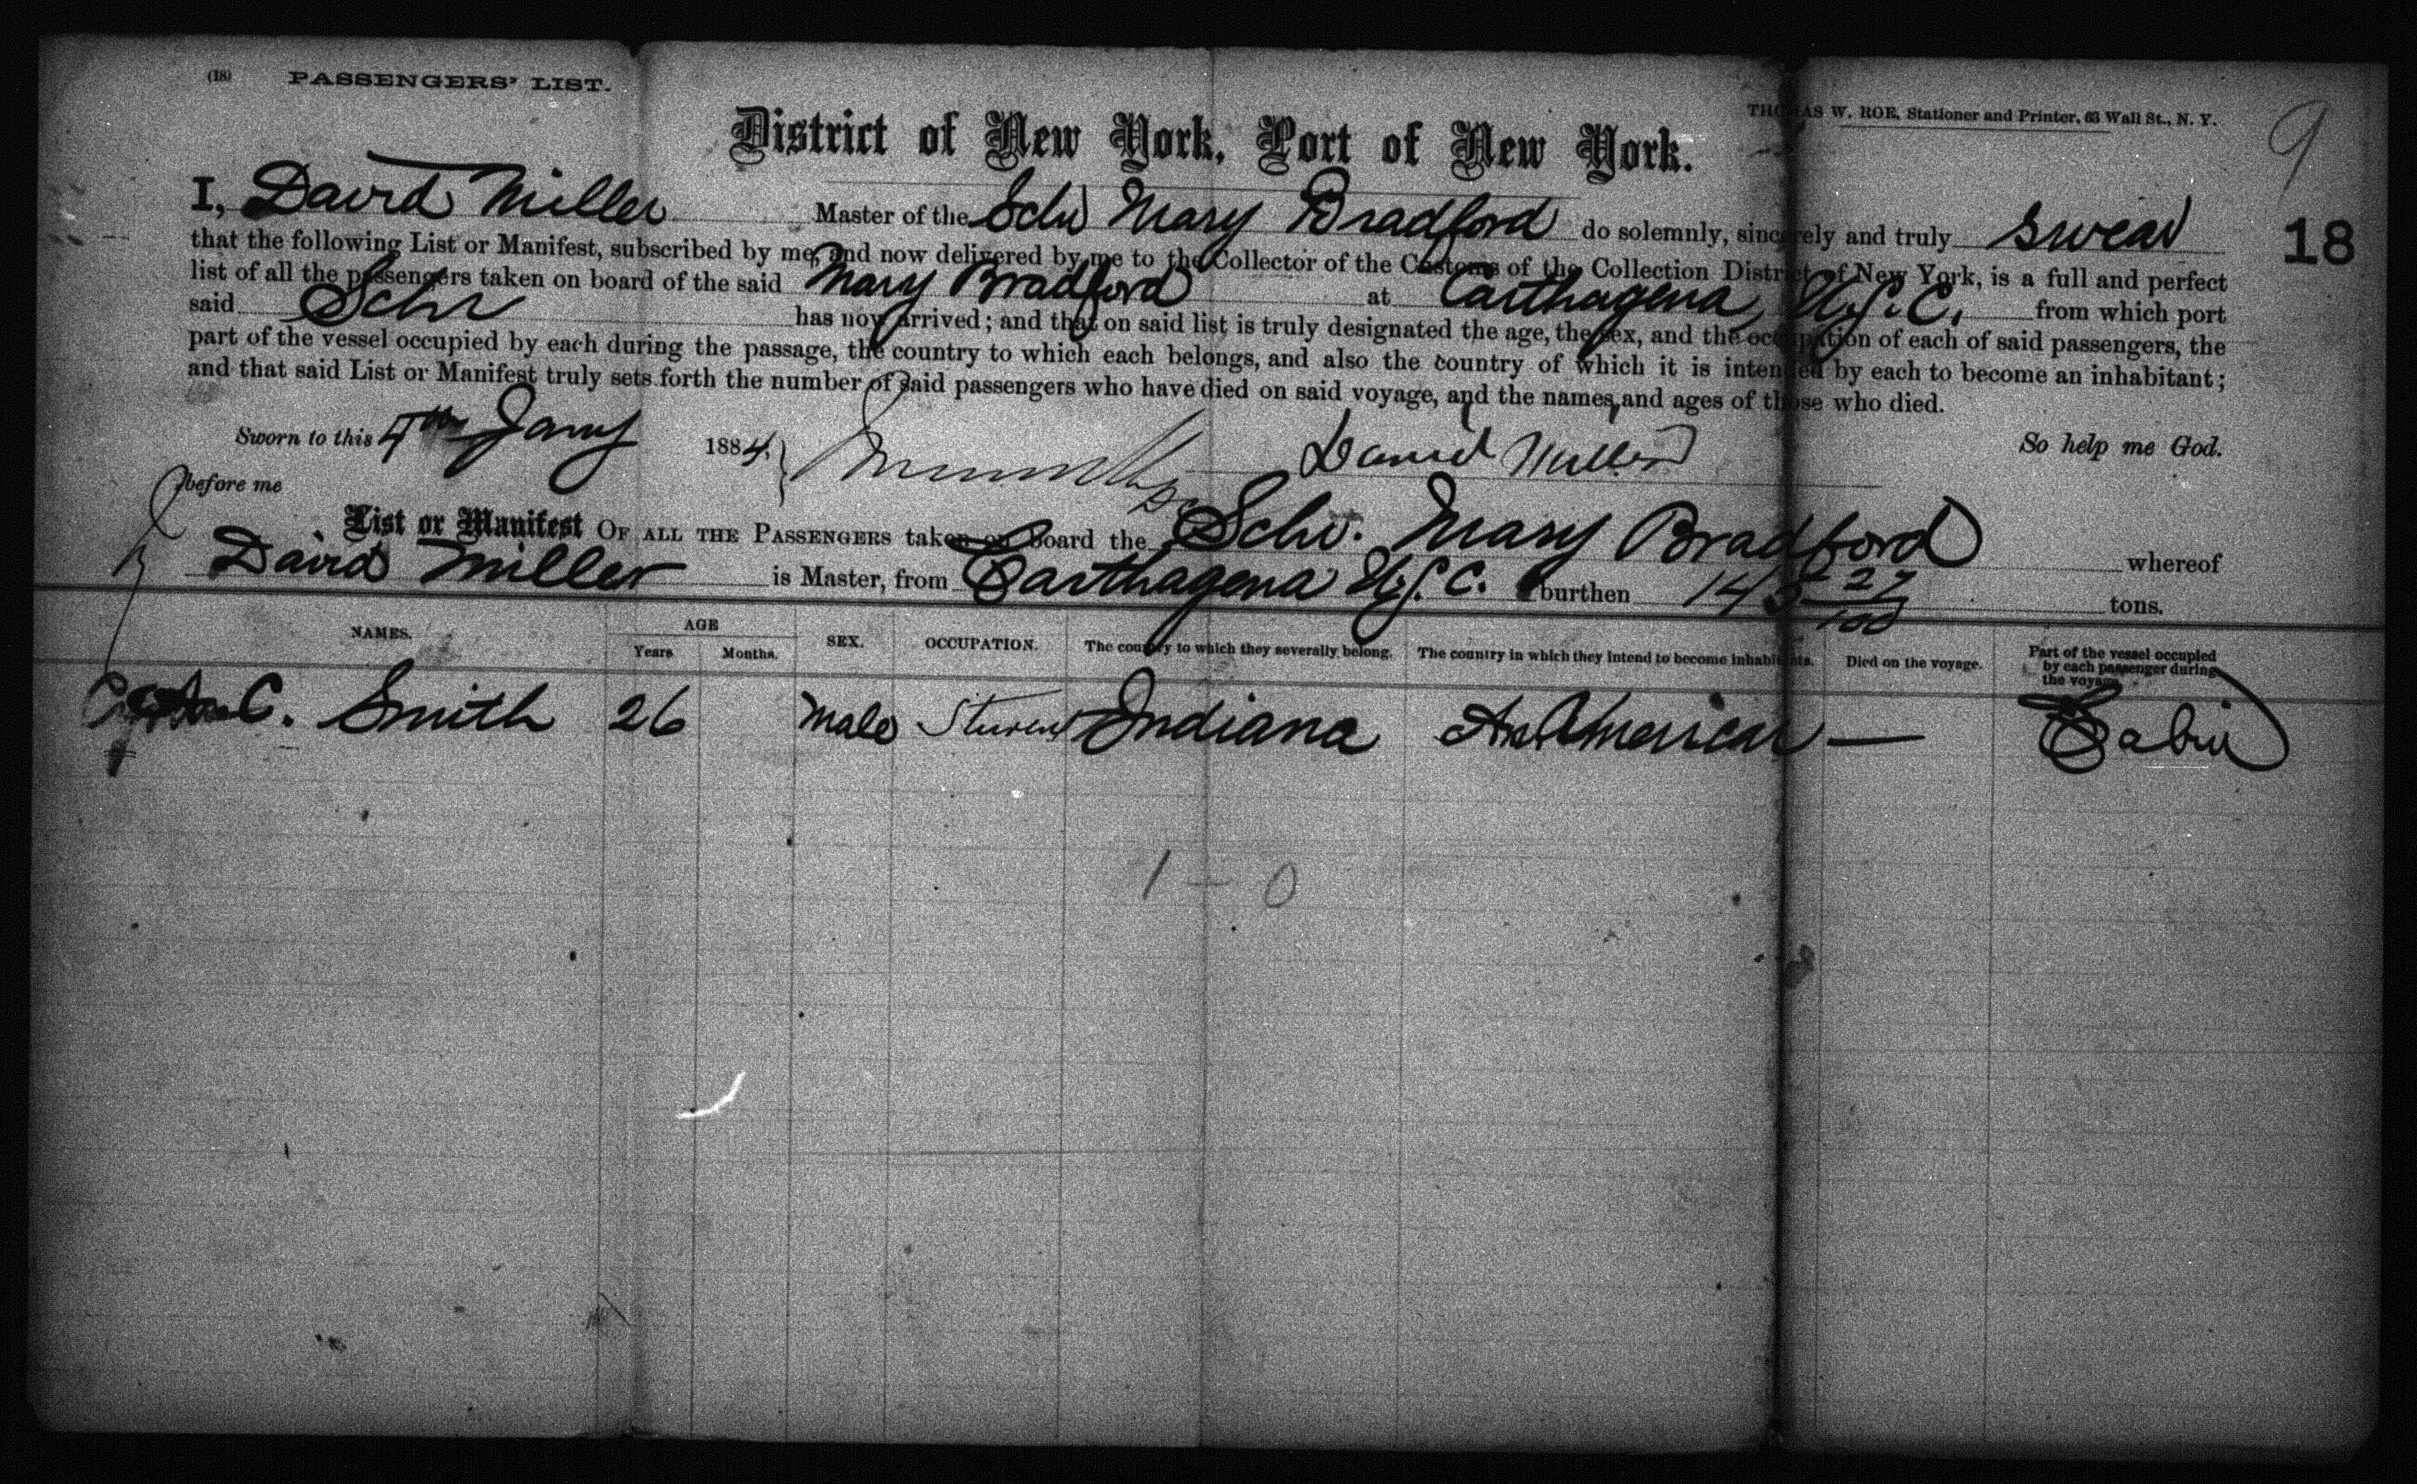 (18) PASSENGERS' LIST.
THOMAS W. ROE, Stationer and Printer, 63 Wall St., N. Y.
9
District of New York, Port of New York.
18
I, David Miller Master of the Schr Mary Bradford do solemnly, sincerely and truly swear
that the following List or Manifest, subscribed by me, and now delivered by me to the Collector of the Customs of the Collection District of New York, is a full and perfect
list of all the passengers taken on board of the said Mary Bradford at Carthagena, U.S.C. from which port
said Schr has now arrived; and that on said list is truly designated the age, the sex, and the occupation of each of said passengers, the
part of the vessel occupied by each during the passage, the country to which each belongs, and also the country of which it is intended by each to become an inhabitant;
and that said List or Manifest truly sets forth the number of said passengers who have died on said voyage, and the names and ages of those who died.
Sworn to this 4th Jany 1884, David Miller So help me God.
before me
List or Manifest OF ALL THE PASSENGERS taken on board the Schr. Mary Bradford whereof
David Miller is Master, from Carthagena U.S.C. burthen 145 27/100 tons.
NAMES. AGE Years Months. SEX. OCCUPATION. The country to which they severally belong. The country in which they intend to become inhabitants. Died on the voyage. Part of the vessel occupied by each passenger during the voyage.
C. Smith 26 Male Indiana American — Cabin
1 – 0